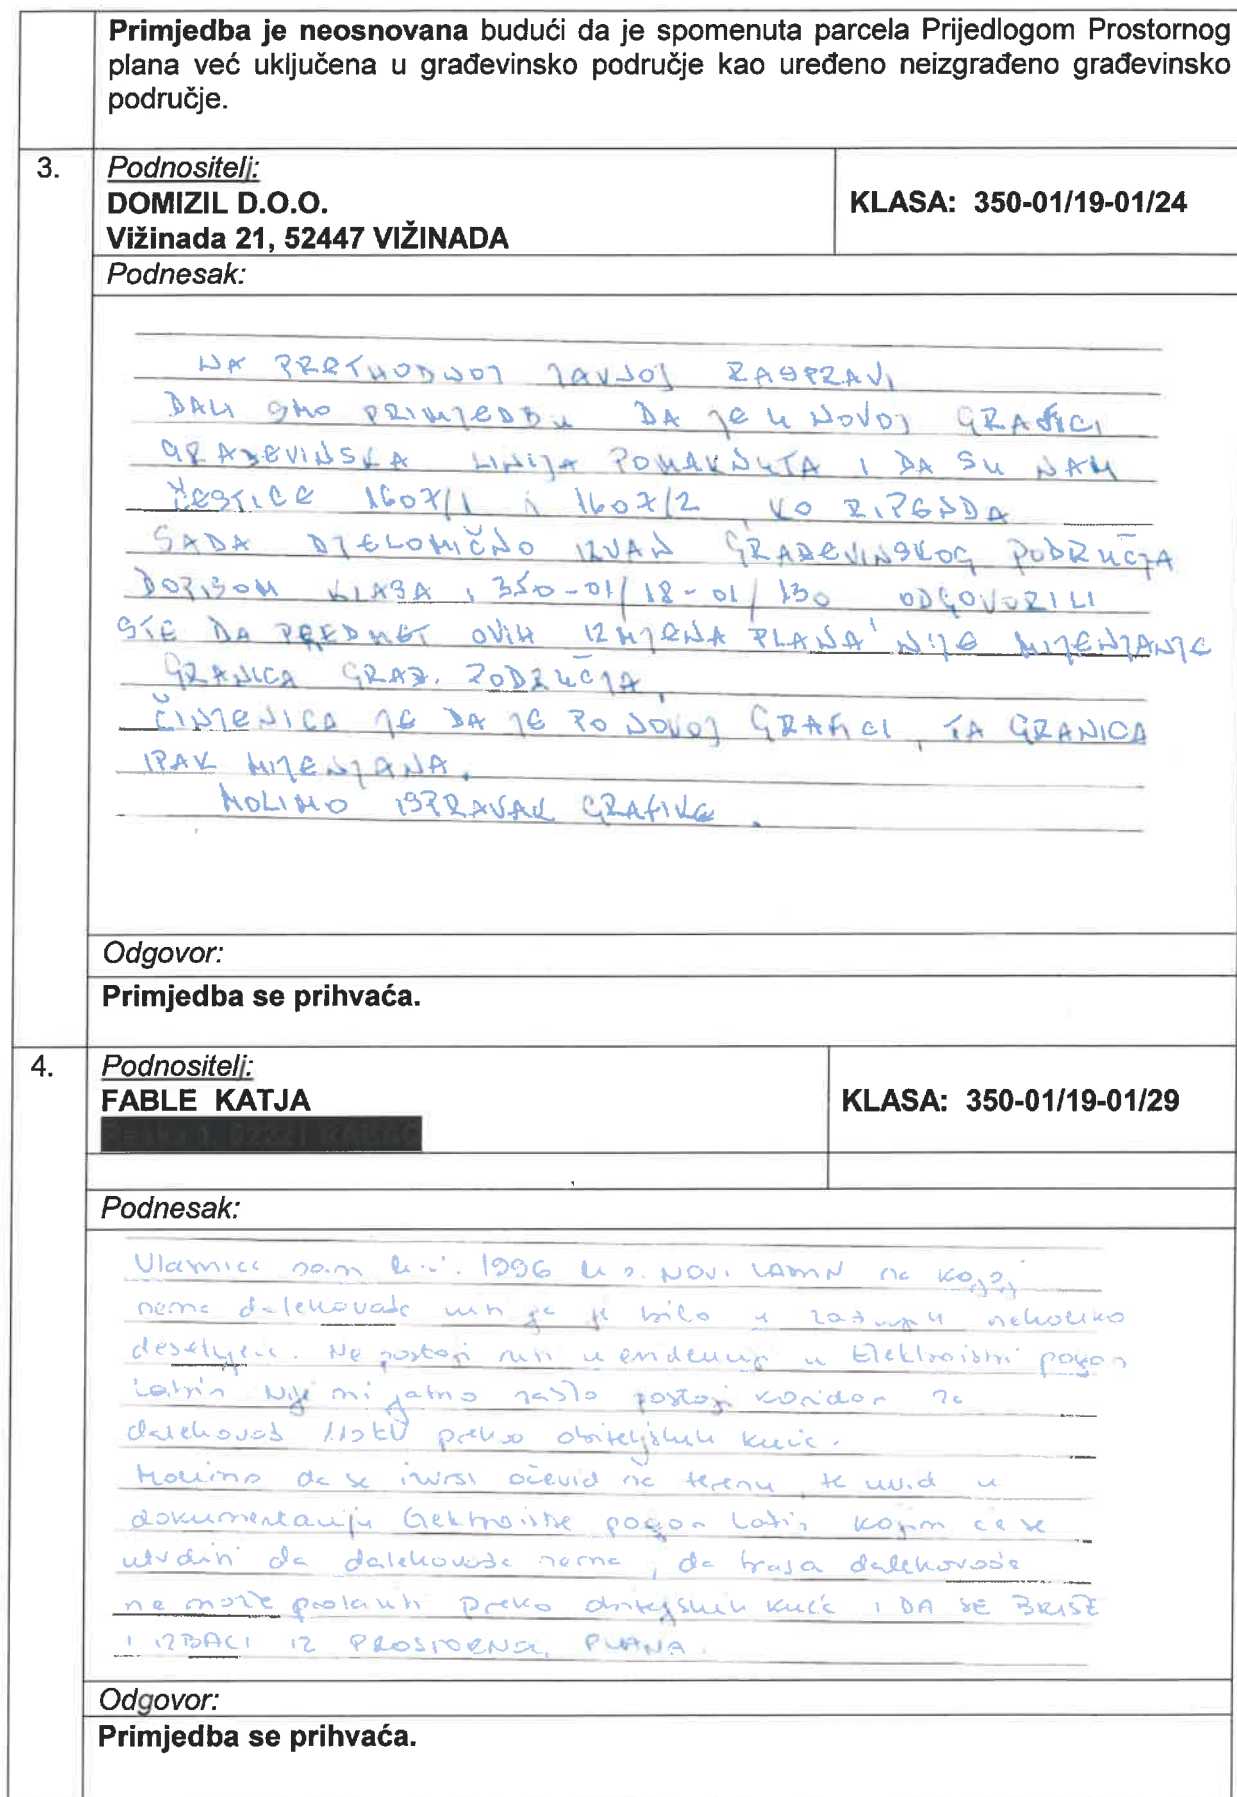 Primjedba je neosnovana budući da je spomenuta parcela Prijedlogom Prostornog
plana već uključena u građevinsko područje kao uređeno neizgrađeno građevinsko
područje.
3.
Podnositelj:
DOMIZIL D.O.O.
Vižinada 21, 52447 VIŽINADA
KLASA: 350-01/19-01/24
Podnesak:
NA PRETHODNOJ JAVNOJ RASPRAVI
DALI SMO PRIMJEDBU DA JE U NOVOJ GRAFICI
GRAĐEVINSKA LINIJA POMAKNUTA I DA SU NAM
ČESTICE 1607/1 i 1607/2, KO
SADA DJELOMIČNO IZVAN GRAĐEVINSKOG PODRUČJA
DOPISOM KLASA: 350-01/18-01/130 ODGOVORILI
STE DA PREDMET OVIH IZMJENA PLANA NIJE MIJENJANJE
GRANICA GRAĐ. PODRUČJA.
ČINJENICA JE DA JE PO NOVOJ GRAFICI, TA GRANICA
IPAK MIJENJANA.
MOLIMO ISPRAVAK GRAFIKE.
Odgovor:
Primjedba se prihvaća.
4.
Podnositelj:
FABLE KATJA
KLASA: 350-01/19-01/29
Podnesak:
Vlasnica sam k.č. 1996 NOVI na kojoj
nema dalekovoda niti ga je bilo u nekoliko
desetljeća. Ne postoji niti u Elektroistri pogon
Nije mi jasno zašto postoji koridor za
dalekovod 110kV preko obiteljskih kuća.
Molimo da se izvrši očevid na terenu, te uvid u
dokumentaciju Elektroistre pogon kojim će se
utvrditi da dalekovoda nema, da trasa dalekovoda
ne može prolaziti preko obiteljskih kuća I DA SE BRIŠE
I IZBACI IZ PLANA.
Odgovor:
Primjedba se prihvaća.